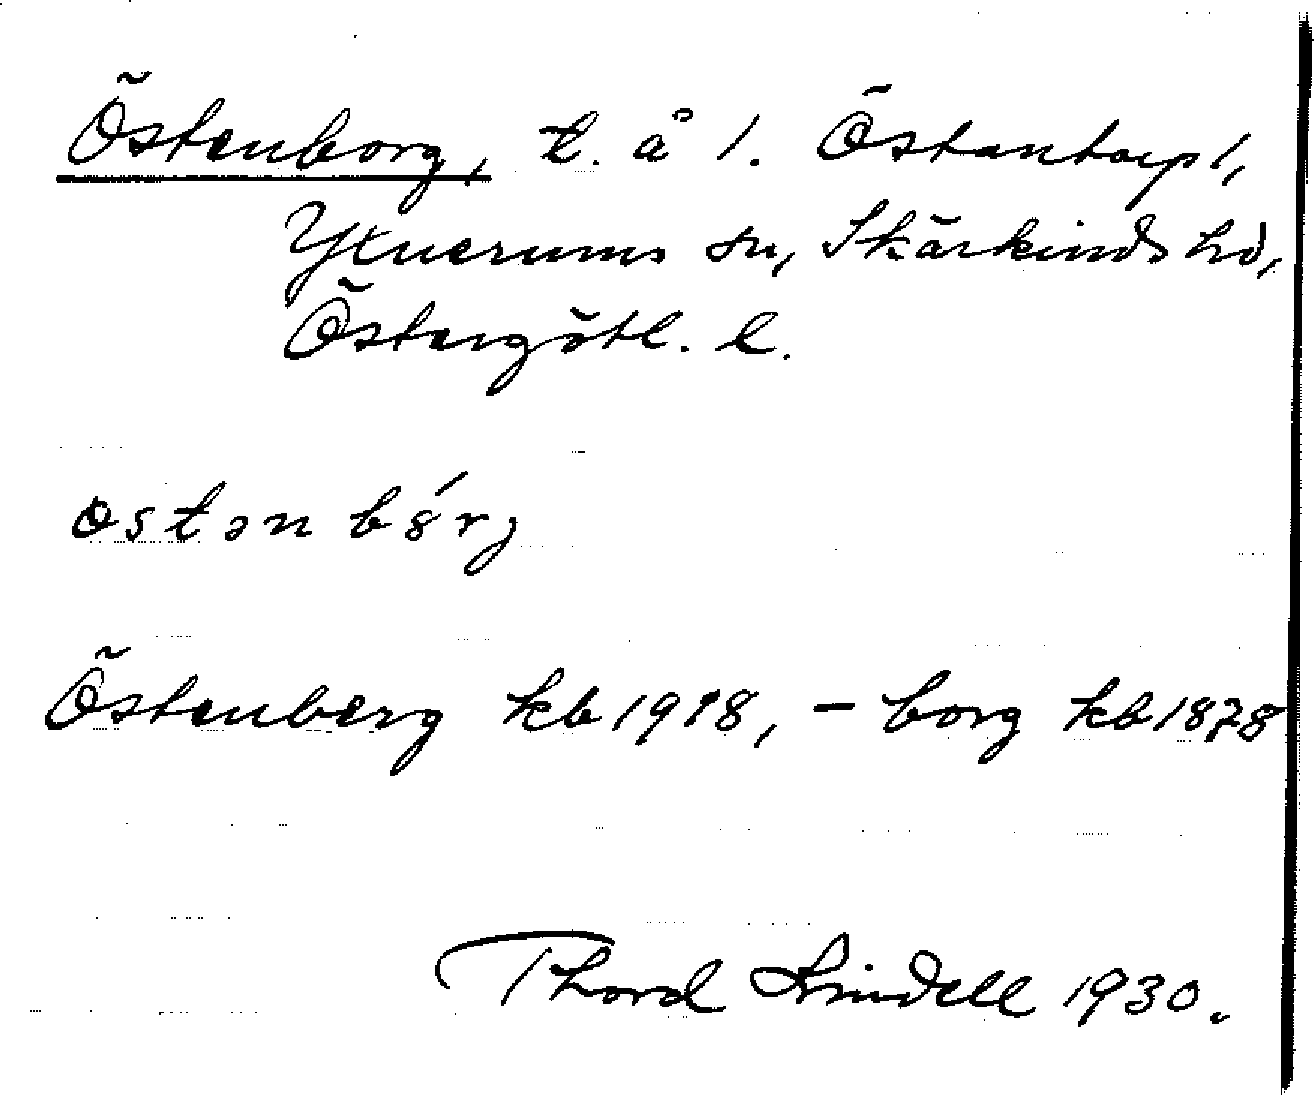 Östenborg, t. å 1. Östantorp 1,
Yxnerums sn, Skärkinds hd,
Östergötl. l.
østən bórj
Östenberg kb 1918, - borg kb 1878
Thord Lindell 1930.